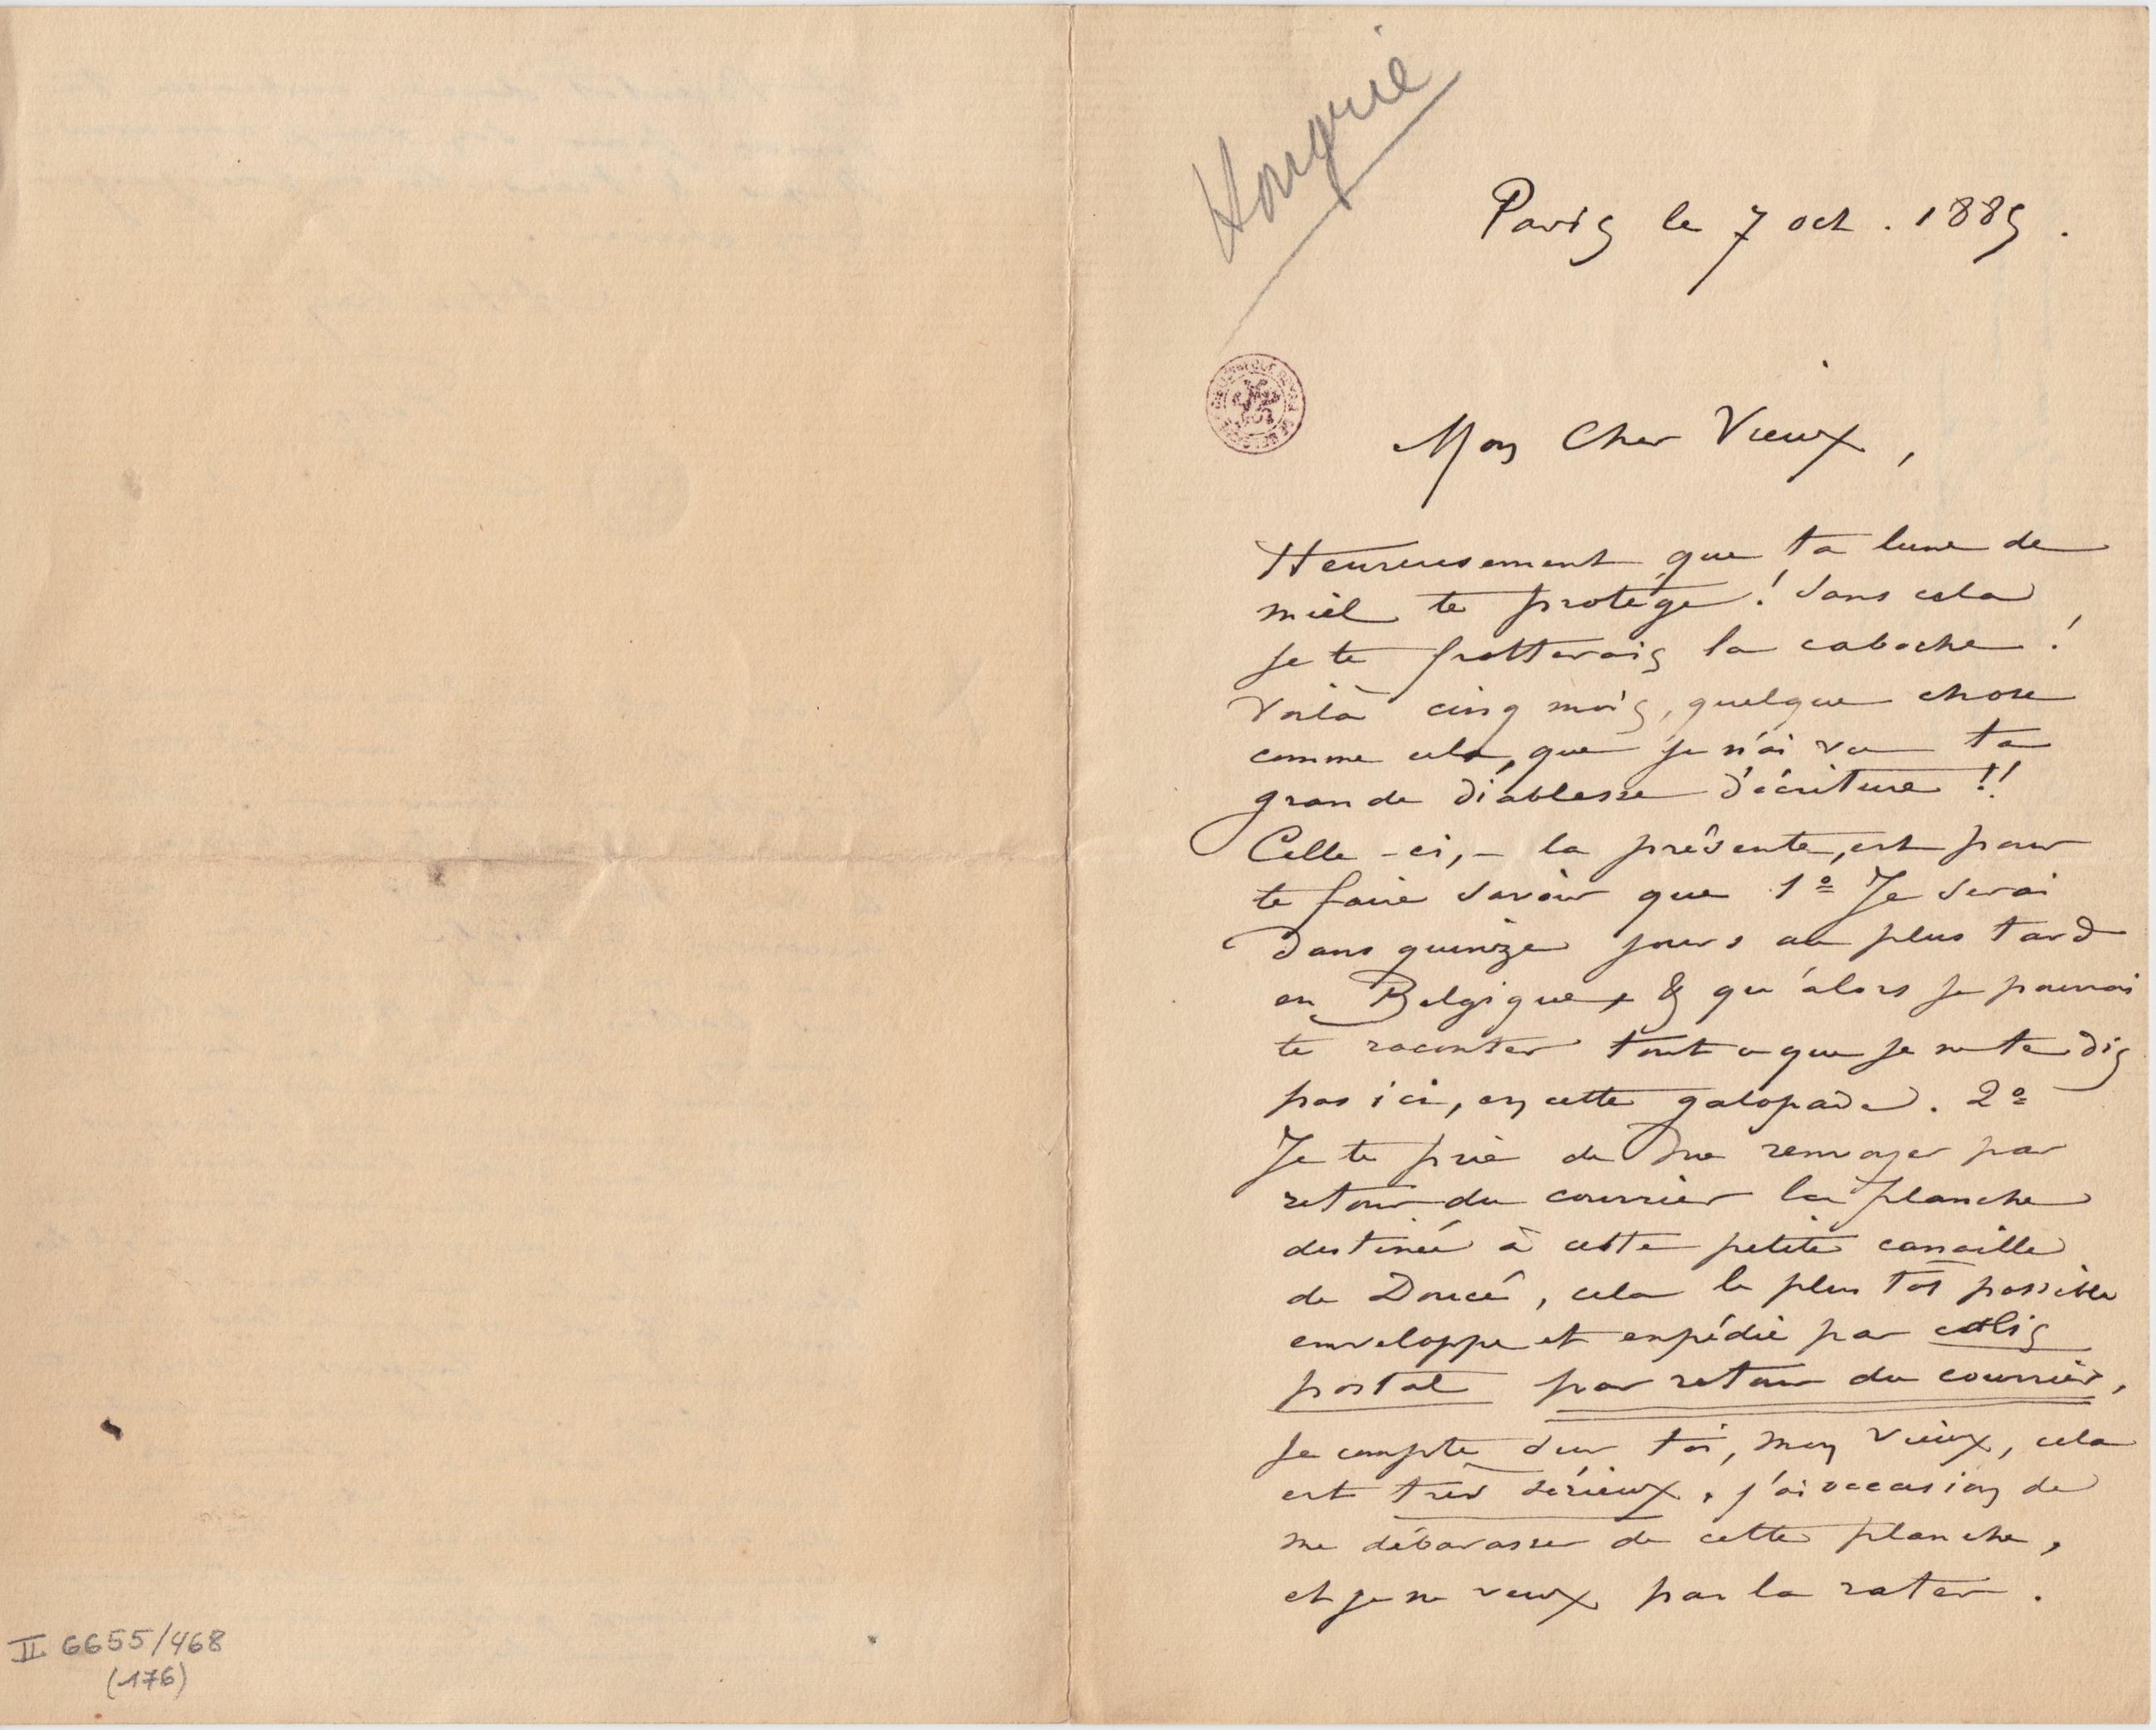 Hongrie
Paris le 7 oct. 1885.
Mon Cher Vieux,
Heureusement que ta lune de
miel te protège! Sans cela
je te frotterais la caboche!
Voilà cinq mois, quelque chose
comme cela, que je n'ai vu ta
grande diablesse d'écriture!!
Celle-ci, – la présente, est pour
te faire savoir que 1º Je serai
dans quinze jours au plus tard
en Belgique, & qu'alors je pourrai
te raconter tout ce que je ne te dis
pas ici, en cette galopade. 2º
Je te prie de me renvoyer par
retour du courrier la planche
destinée à cette petite canaille
de Doucé, cela le plus tôt possible
enveloppe et expédié par colis
postal par retour du courrier,
je compte sur toi, mon vieux, cela
est très sérieux, j'ai occasion de
me débarasser de cette planche,
et je ne veux pas la rater.
II 6655/468
(176)